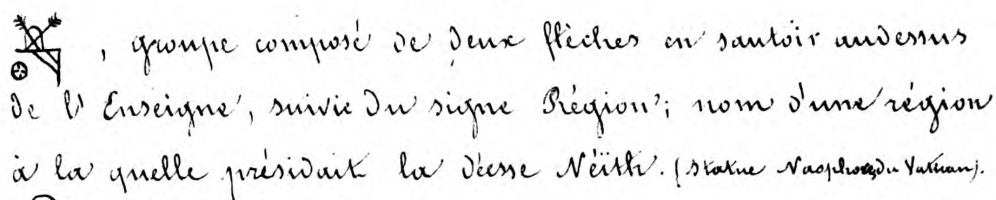 , groupe composé de deux flèches en sautoir audessus
de l' Enseigne, suivie du signe Région; nom d'une région
à la quelle présidait la déesse Néith. (Statue Naophore du Vatican).